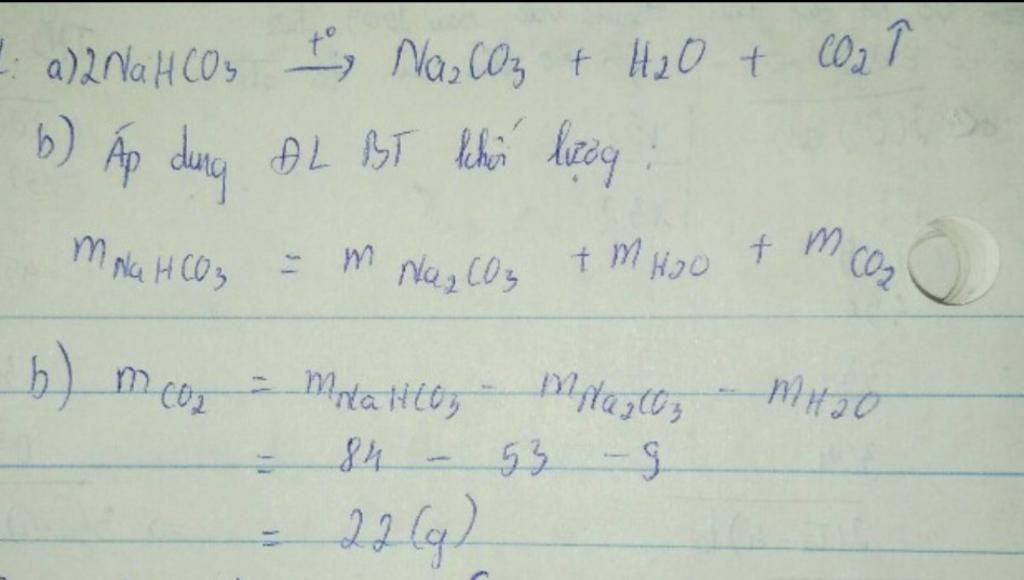 a) 2NaHCO3 t° → Na2CO3 + H2O + CO2 ↑
b) Áp dụng ĐL BT khối lượng :
m NaHCO3 = m Na2CO3 + m H2O + m CO2
b) m CO2 = m NaHCO3 - m Na2CO3 - m H2O
= 84 - 53 - 9
= 22 (g)